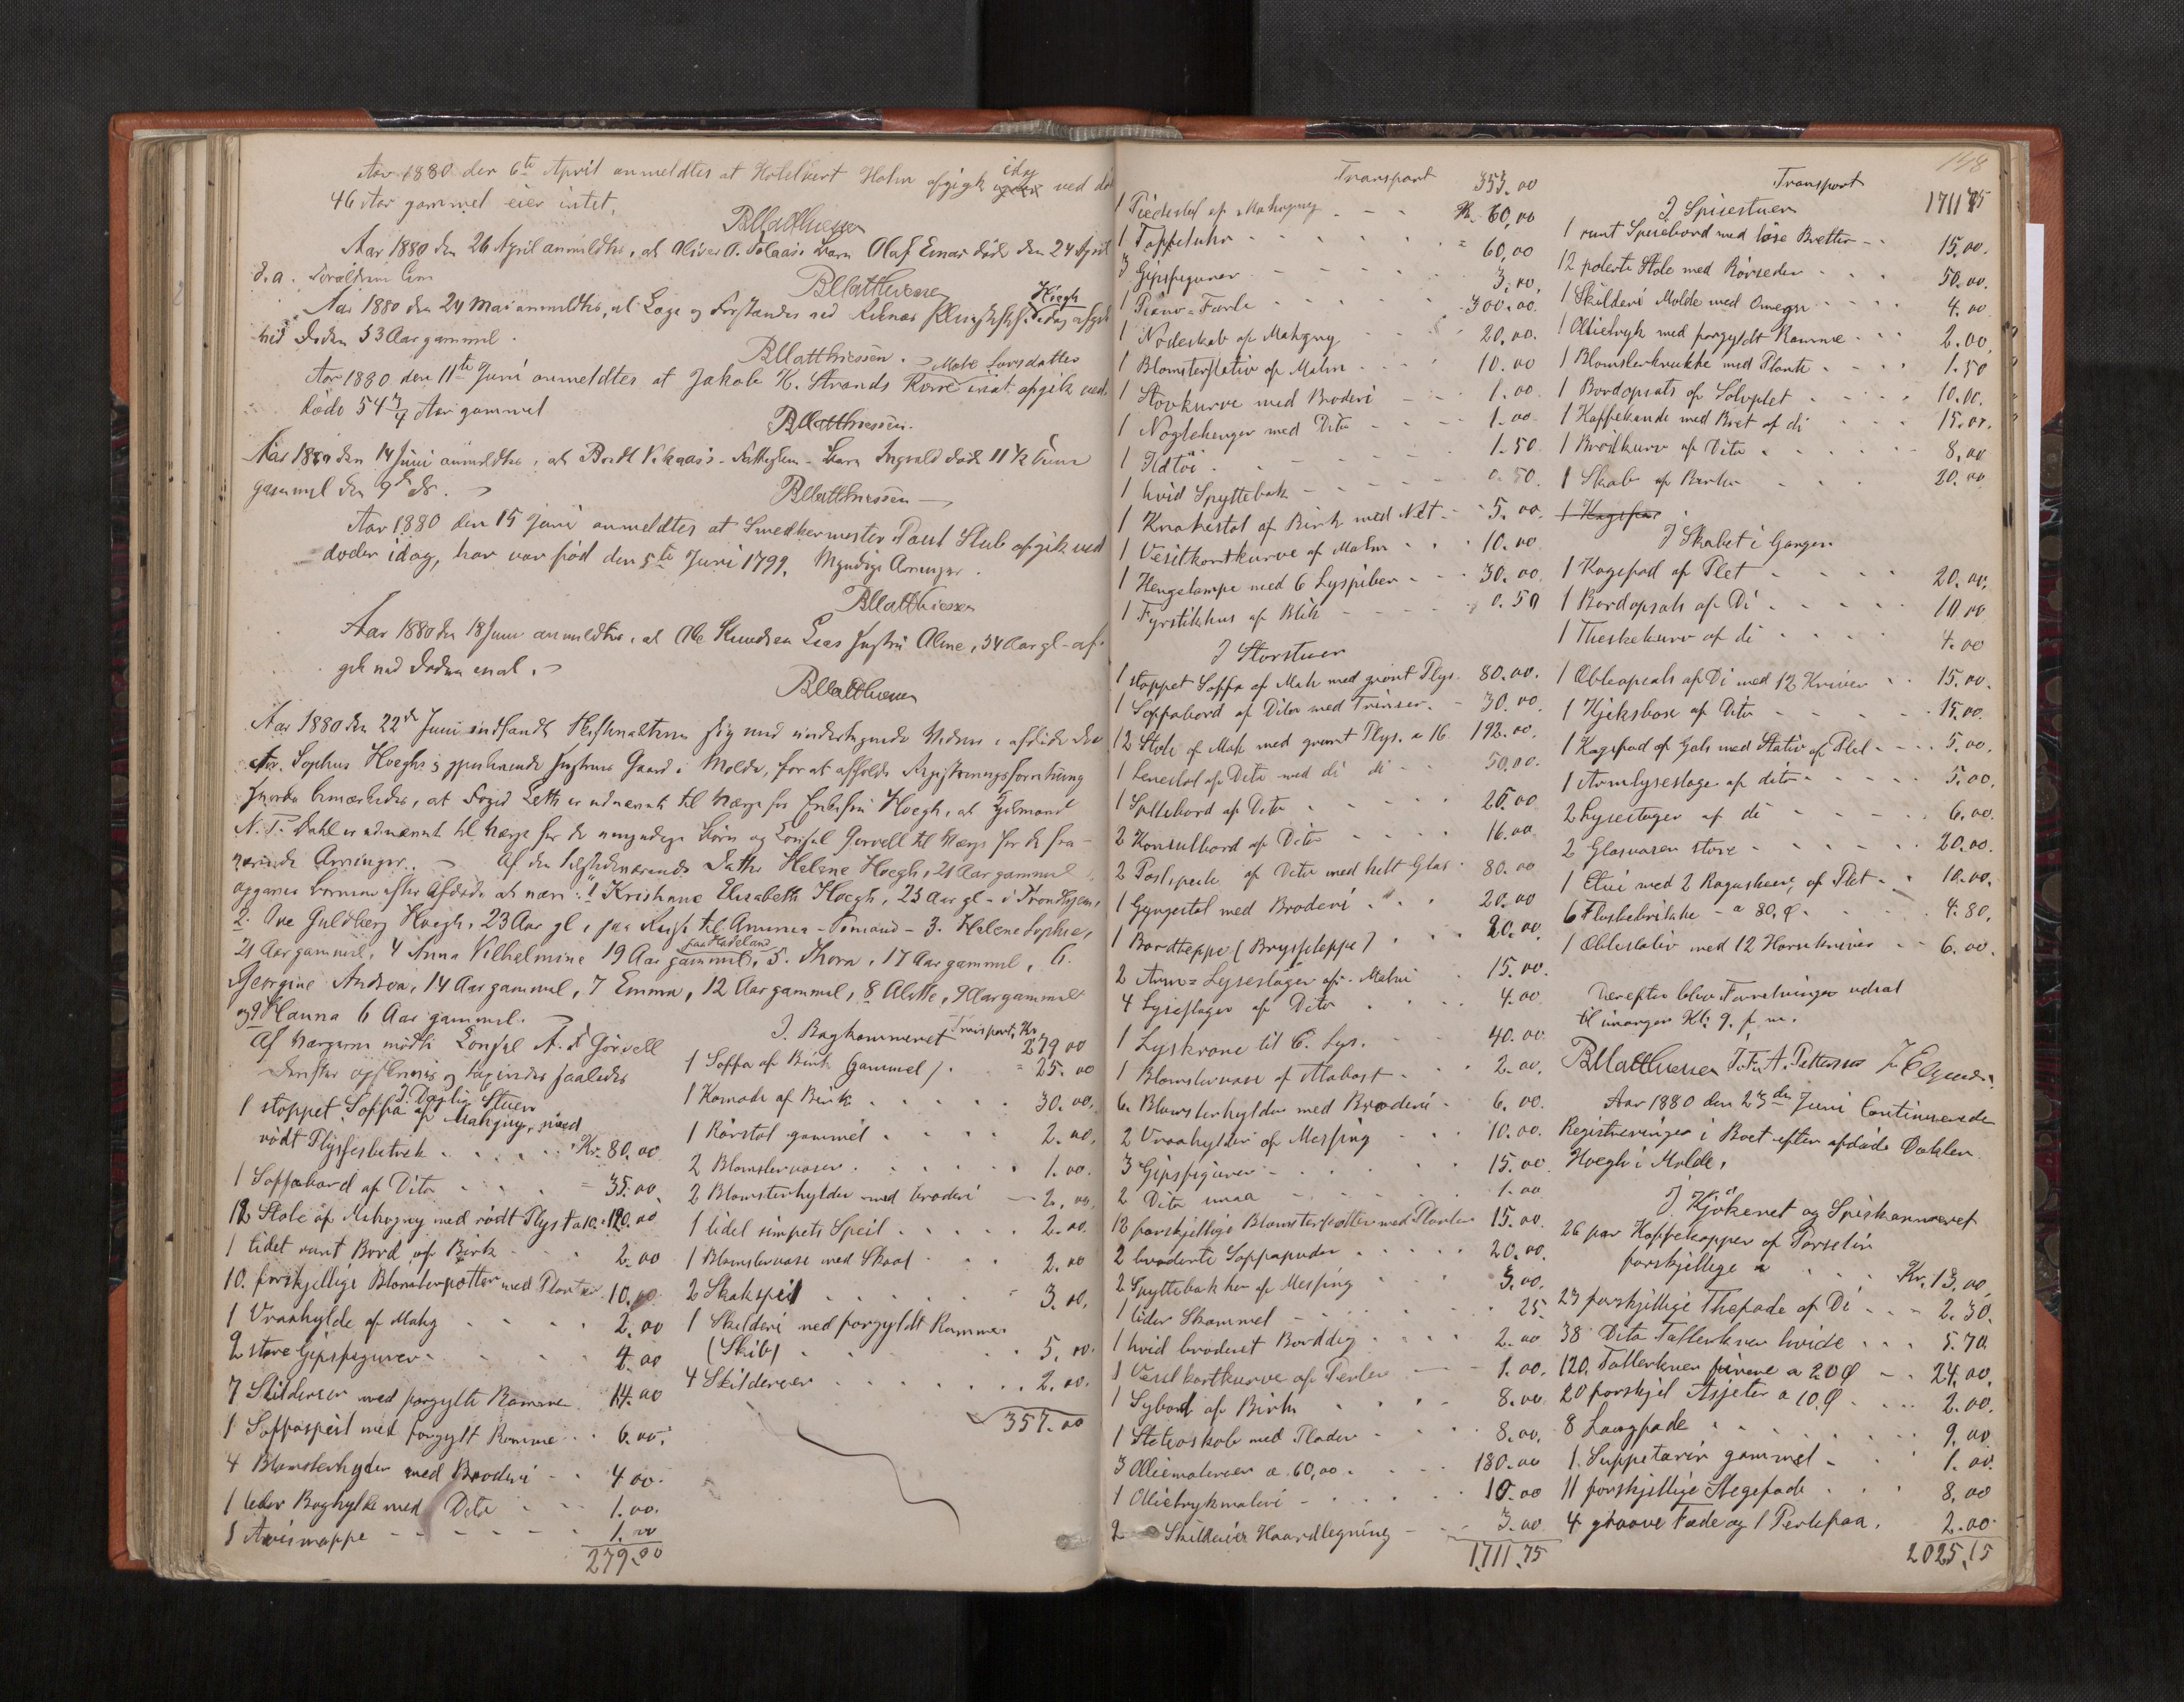 Aar 1880 den 6te April anmeldtes at Hotelvert Holm afgigk idag ved dö
46 Aar gammel eier intet.
BMatthiessen
Aar 1880 den 26 April anmeldtes, at Oliver A. Barn Olaf Einar döde den 24 April
d.a. Forældrene
BMatthiessen
Aar 1880 den 24 Mai anmeldtes, at Læge og Forstander ved Reknes Höegh idag afgik
ved Döden 53 Aar gammel.
BMatthiessen.
Aar 1880 den 11te Juni anmeldtes at Jakob K. Strands Kone Larsdatter inat afgik ved
döde 54 3/4 Aar gammel
BMatthiessen.
Aar 1880 den 14 Juni anmeldtes, at Barn Ingvald döde 11 1/2
gammel den 9de ds.
BMatthiessen
Aar 1880 den 15 Juni anmeldtes at Smedkermester Stub afgik ved
döden idag, har var född den 5te Juni 1799. Myndige Arvinger.
BMatthiessen
Aar 1880 den 18 Juni anmeldtes, at Ole Knudsen Hustru Aline, 54 Aar gl - af-
gik ved Döden inat.
BMatthiessen
Aar 1880 den 22de Juni indfandt Skifteretten sig med undertegnede Vidner i afdöde Dok-
tor Sophus Hoeghs og gjenlevende Hustrues Gaard i Molde, for at afholde Registreringsforretning
hvorved bemærkedes, at Foged Leth er udnævnt til Værge for Enkefru Hoegh, at
N. P. Dahl er udnævnt til Værge for de umyndige Börn og Konsul Gørvell til Værge for de fra-
værende Arvinger. Af den tilstedeværende Datter Helene Hoegh, 21 Aar gammel
opgaves Börnene efter Afdöde at være: 1 Kristiane Elisabeth Hoegh, 25 Aar gl - i Trondhjem,
2. Ove Guldberg Hoegh, 23 Aar gl, paa Reise til Amerika - Sömand - 3. Helene Sophie,
21 Aar gammel, 4 Anna Vilhelmine 19 Aar gammel, paa Hadeland 5. Thora, 17 Aar gammel, 6.
Georgine Andrea, 14 Aar gammel, 7 Emma, 12 Aar gammel, 8 Alette, 9 Aar gammel
og 9 Hanna 6 Aar gammel.
Af Værgerne mödte Konsul A. Gørvell
Derefter saaledes
I Daglig Stuen
1 stoppet Soffa af Mahgny, med
rödt Plysjesbetræk Kr. 80.00
1 Soffabord af Dito 35.00
12 Stole af Mahogny med rödt Plys a 10. 120.00
1 lidet runt Bord af Birk 2.00
10. forskjellige Blomsterpotter med Planter 10.00
1 Vraahylde af Mahg 2.00
2 store Gipsfigurer 4.00
7 Skilderier med forgylte Rammer 14.00
1 Soffaspeil med forgylt Ramme 6.00
4 Blomsterhyder med Broderi 4.00
1 liden Boghylde med Dito 1.00
1 Avismappe 1.00
279.00
I. Bagkammeret Transport, Kr 279.00
1 Soffa af Birk (gammel) 25.00
1 Komode af Birk 30.00
1 Rörstol gammel 2.00
2 Blomstervaser 1.00
2 Blomsterhylder med broderi 2.00
1 lidet simpelt Speil 2.00
1 Blomstervase med Skaal 2.00
2 Skakspil 3.00
1 Skilderi med forgyldt Ramme
(Skib) 5.00
4 Skilderier 2.00
357.00
Transport 353.00
1 Piedestal af Mahogny Kr. 60,00
1 Taffeluhr 60,00
3 Gipsfigurer 3.00
1 Piano-Forte 300.00
1 Nodeskab af Mahgny 20.00
1 Blomsterstativ af Malm 10.00
1 Stövkurve med Broderi 1.00
1 Nöglehenger med Dito 1.00
1 Ildtöi 1.50
1 hvid Spyttebak 0.50
1 Knakestol af Birk med Net 5.00
1 Visitkortkurve af Malm 10.00
1 Hengelampe med 6 Lyspiber 30.00
1 Fyrstikhus af Blik 0.50
I Storstuen
1 stoppet Soffa af Mah med grönt Plys 80.00
1 Soffabord af Dito med Trinser 30.00
12 Stole af Mah med grönt Plys. a 16 192.00
1 Lenestol af Dito med di di 50.00
1 Spillebord af Dito 20.00
2 Konsulbord af Dito 16.00
2 Postspeile af Dito med helt Glas 80.00
1 Gyngestol med Broderi 20.00
1 Bordteppe (Brysselteppe) 20.00
2 Arm-Lysestager af Malm 15.00
4 Lysestager af Dito 4.00
1 Lyskrone til 6. Lys. 40.00
1 Blomstervase af Alabast 2.00
6. Blomsterhylder med Broderi 6.00
2 Vraahylder af Messing 10.00
3 Gipsfigurer 15.00
2 Dito smaa 1.00
13 forskjellige Blomsterpotter med Planter 15.00
2 broderte Soffapuder 20.00
2 Spyttebakker af Messing 3.00
1 liden Skammel 25
1 hvid broderet Borddug 2.00
1 Visitkortkurve af Perler 1.00
1 Sybord af Birk 8.00
1 Steteoskob med Plader 8.00
3 Oliemalerier a 60,00 180.00
1 Olietrykmaleri 10.00
2 Skilderier Haardlegning 3.00
1711.75
148
Transport 1711.75
I Spisestuen
1 runt Spisebord med löse Bretter 15.00
12 polerte Stole med Rörseder 50.00
1 Skilderi Molde med Omegn 4.00
1 Olietryk med forgyldt Ramme 2.00
1 Blomsterkrukke med Plante 1.50
1 Bordopsats af Solvplet 10.00
1 Kaffekande med Bret af di 15.00
1 Brödkurv af Dito 8.00
1 Skab af Birk 20.00
1 Kagefad
I Skabet i Gangen
1 Kagefad af Plet 20.00
1 Bordopsats af Di 10.00
1 Theskekurv af di 4.00
1 Obleopsats af Di med 12 Kniver 15.00
1 Kjeksbose af Dito 15.00
1 Kagefad af Gals med Stativ af Plet 5.00
1 Armlysestage af dito 5.00
2 Lysestager af di 6.00
2 Glasvaser store 20.00
1 Etui med 2 Raguskeer, af Plet 10.00
6 Flaskebrikke a 80. Ø. 4.80
1 Oblestativ med 12 Hornkniver 6.00
Derefter blev Forretningen udsat
til imorgen Kl. 9. f.m.
BMatthiessen
Aar 1880 den 23de Juni Continuerede
Registreringen i Boet efter afdöde Doktor
Hoegh i Molde,
I Kjökenet og Spiskammeret
26 par Kaffekopper af Porselin
forskjellige Kr. 13.00
23 forskjellige Thefade af Di 2.30
38 Dito Tallerkner hvide 5.70
120. Tallerkner finere a 20 Ø 24.00
20 forskjel Asjeter a 10. Ø 2.00
8 Langfade 9.00
1. Suppeterin gammel 1.00
11 forskjellige Stegefade 8.00
4 groove Fade og 1 2.00
2025.15